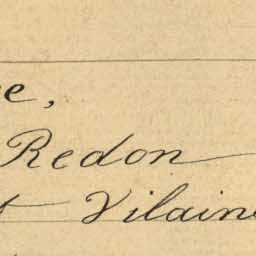 e,
Redon
t Vilain